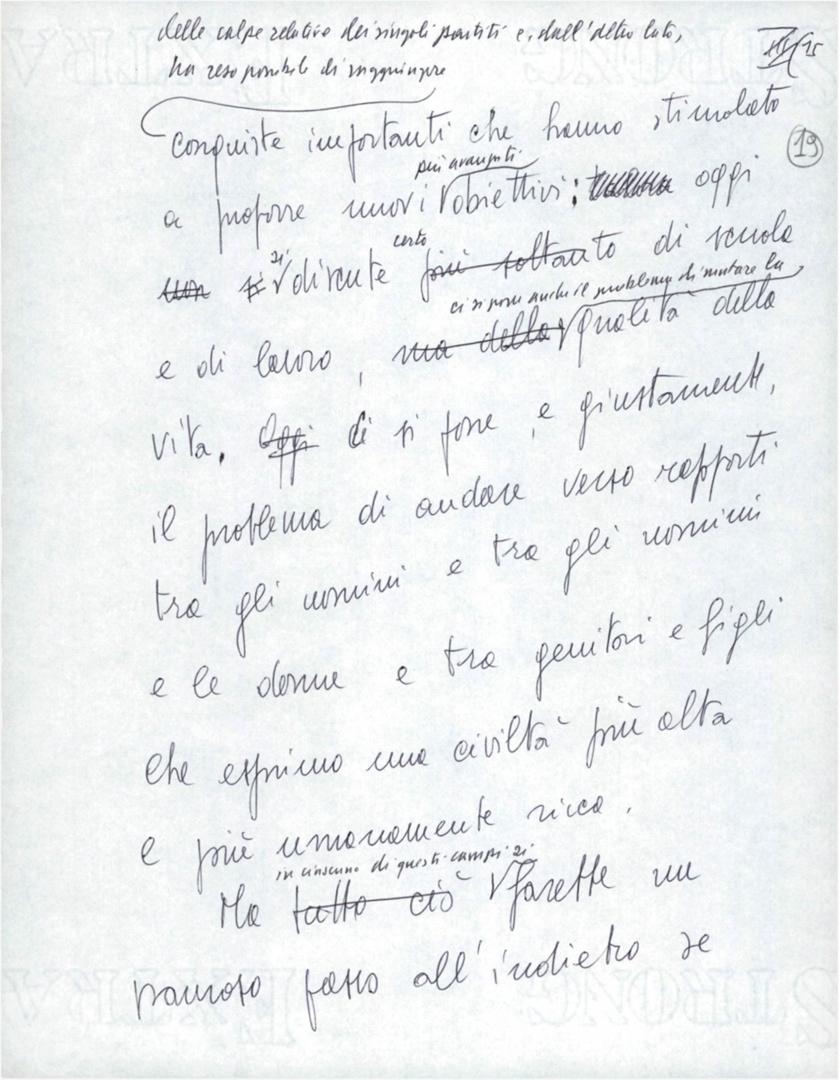 delle colpe relative dei singoli partiti e, dall'altro lato,
ha reso possibile di raggiungere
III/15
19
conquiste importanti che hanno stimolato
più avanzati
a proporre nuovi obiettivi: oggi
si certo
non si discute più soltanto di scuola
ci si pone anche il problema di mutare la
e di lavoro, ma della qualità della
vita. Oggi Ci si pone, e giustamente,
il problema di andare verso rapporti
tra gli uomini e tra gli uomini
e le donne e tra genitori e figli
che esprimo una civiltà più alta
e più umanamente ricca.
in ciascuno di questi campi si
Ma tutto ciò farebbe un
pauroso passo all'indietro se